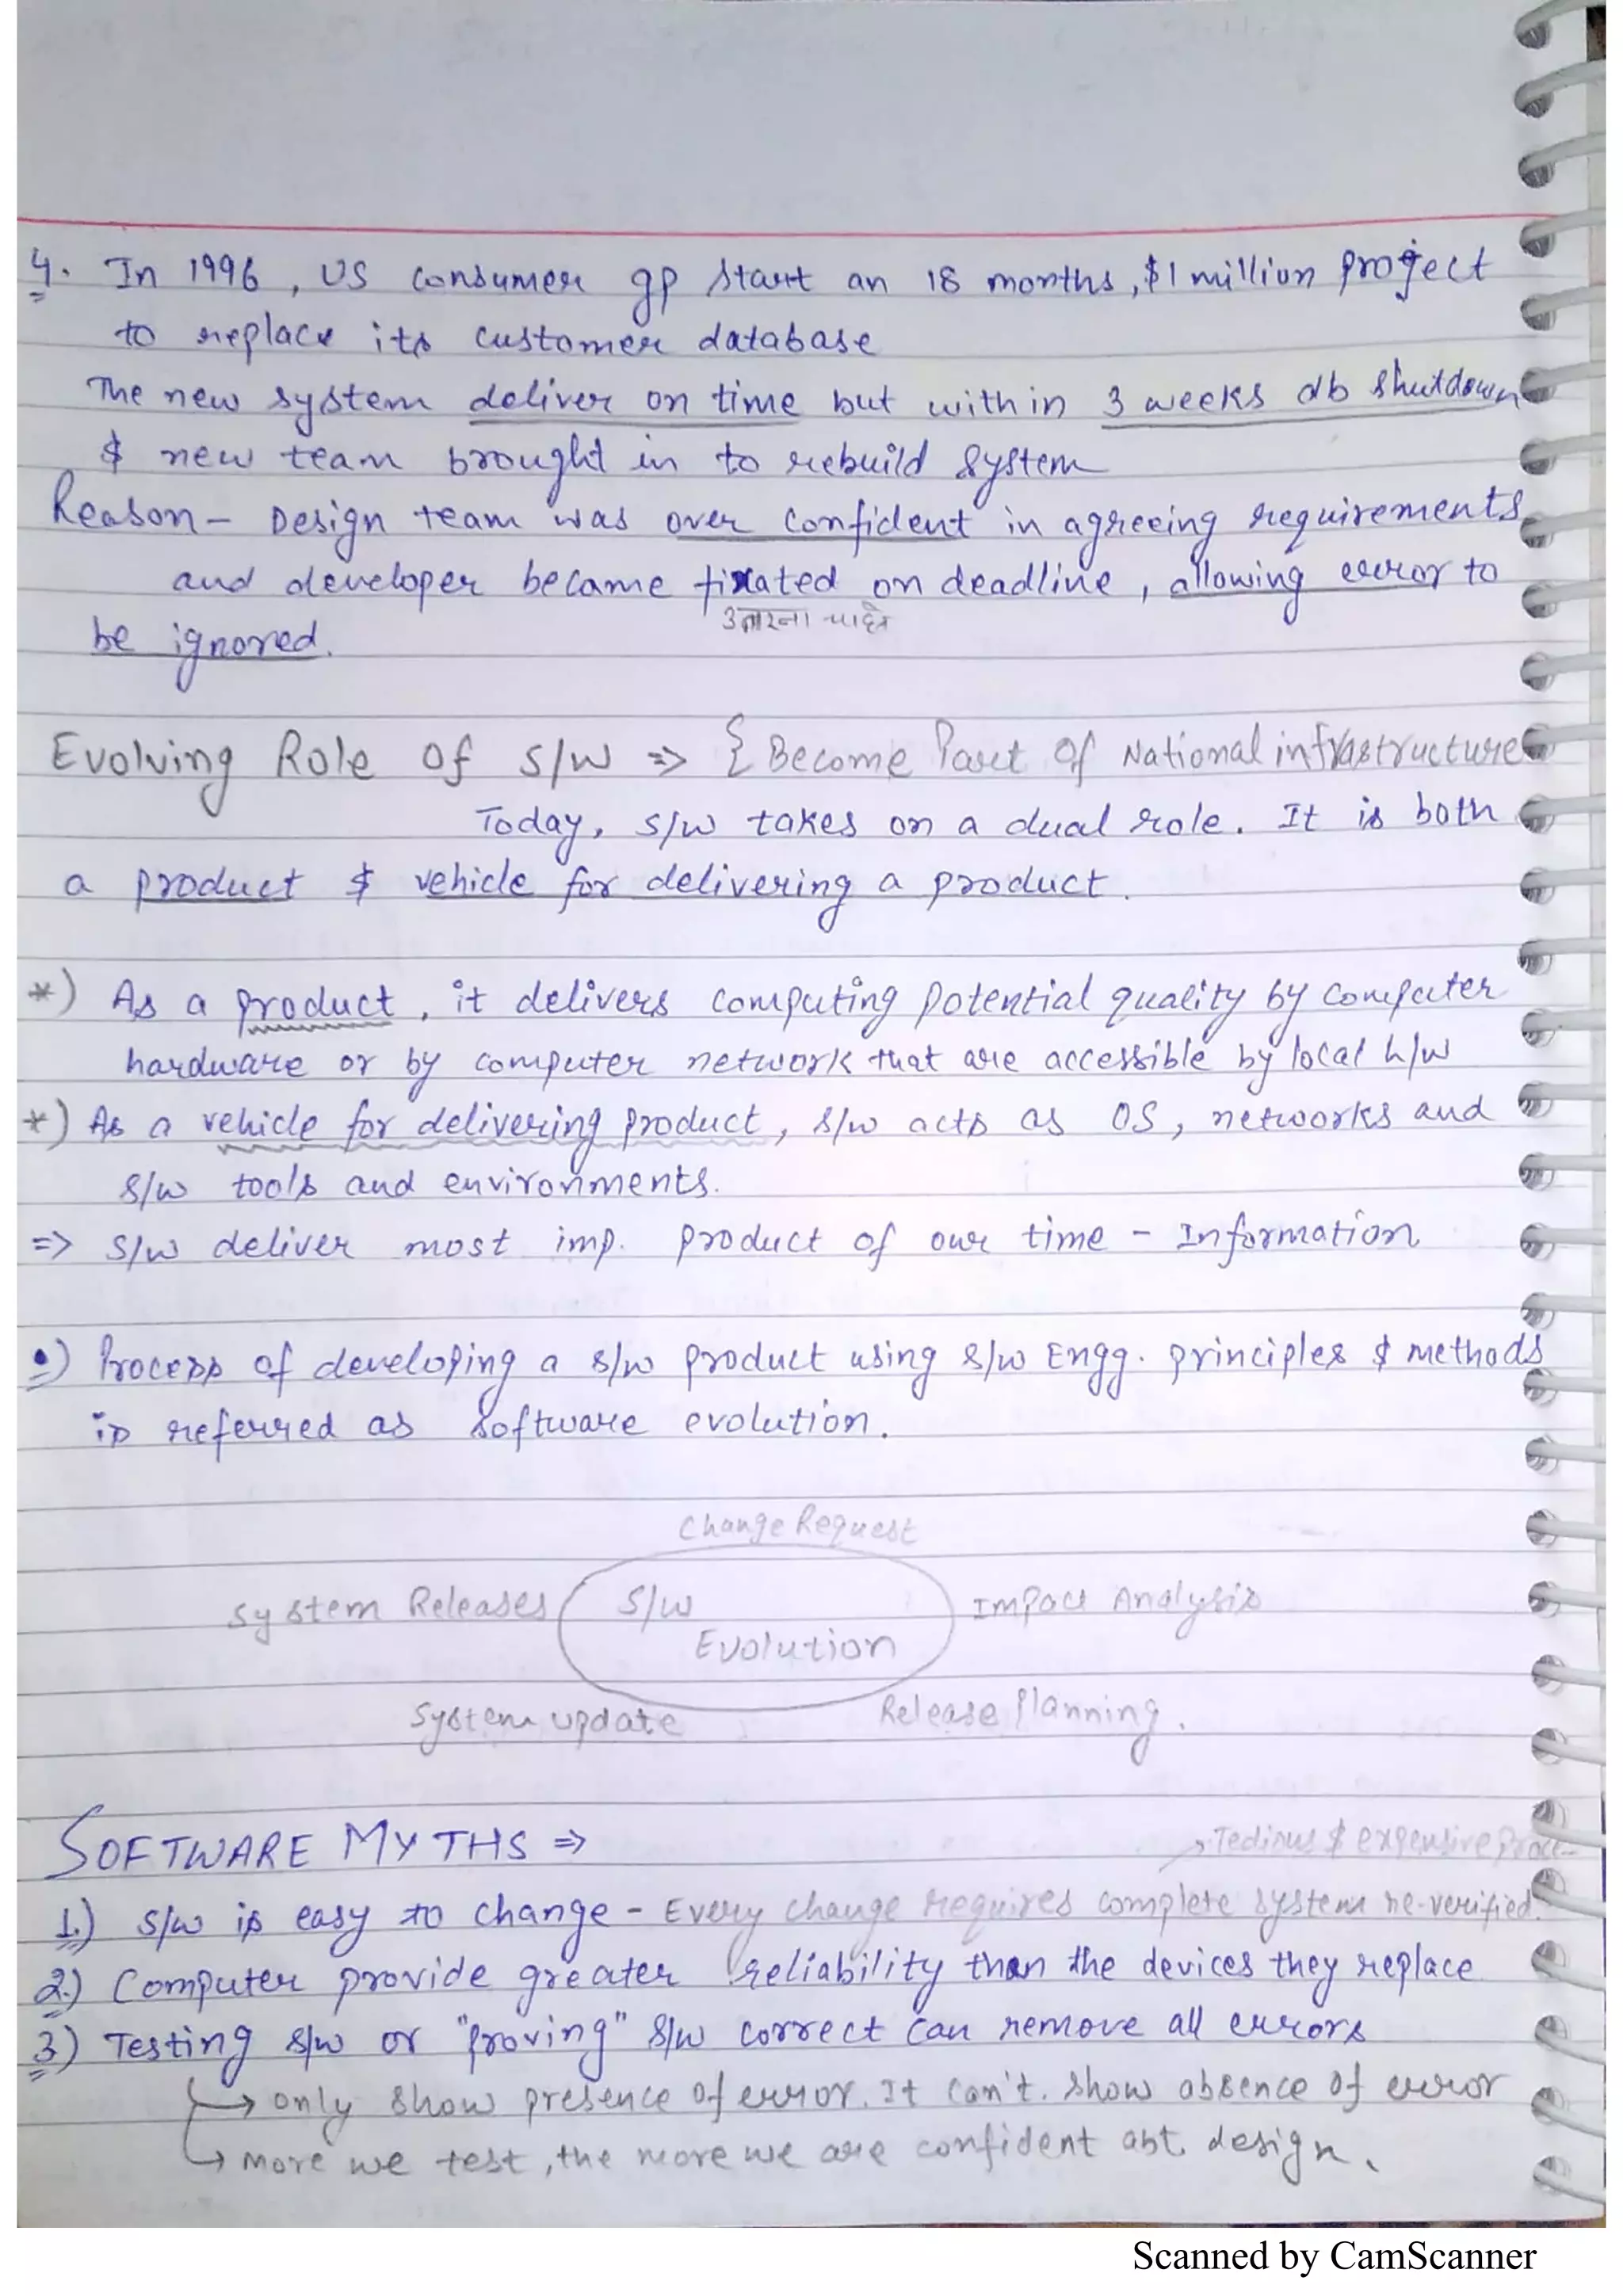 4. In 1996, US consumer gp start an 18 months, $1 million project
to replace its customer database
The new system deliver on time but within 3 weeks db shutdown
& new team brought in to rebuild system
Reason - Design team was over confident in agreeing requirements
and developer became fixated on deadline, allowing error to
be ignored.
Evolving Role of S/W => { Become Part of National infrastructure
Today, S/W takes on a dual role. It is both
a product & vehicle for delivering a product.
*) As a product, it delivers computing potential quality by computer
hardware or by computer network that are accessible by local h/w
*) As a vehicle for delivering product, S/w acts as OS, networks and
S/w tools and environments.
=> S/w deliver most imp. product of our time - Information
•) Process of developing a s/w product using s/w Engg. principles & methods
is referred as software evolution.
Change Request
System Releases S/W Impact Analysis
Evolution
System update Release Planning.
SOFTWARE MYTHS =>
→ Tedious & expensive
1.) S/w is easy to change - Every change requires complete system re-verified.
2.) Computer provide greater reliability than the devices they replace
3) Testing S/w or "proving" S/w correct can remove all errors
→ only show presence of error. It can't. show absence of error
→ More we test, the more we are confident abt. design.
Scanned by CamScanner